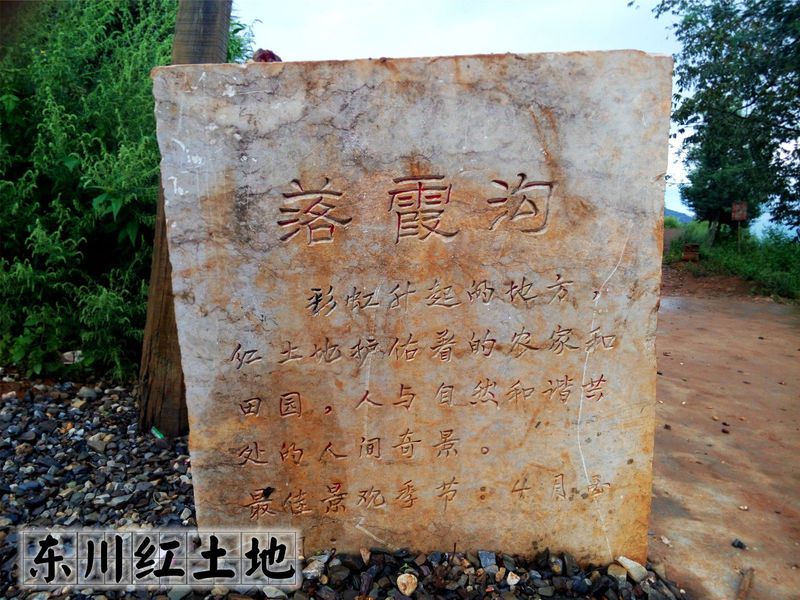 落霞沟
彩虹升起的地方，
红土地护佑着的农家和
田园，人与自然和谐共
处的人间奇景。
最佳景观季节：4月至
东川红土地